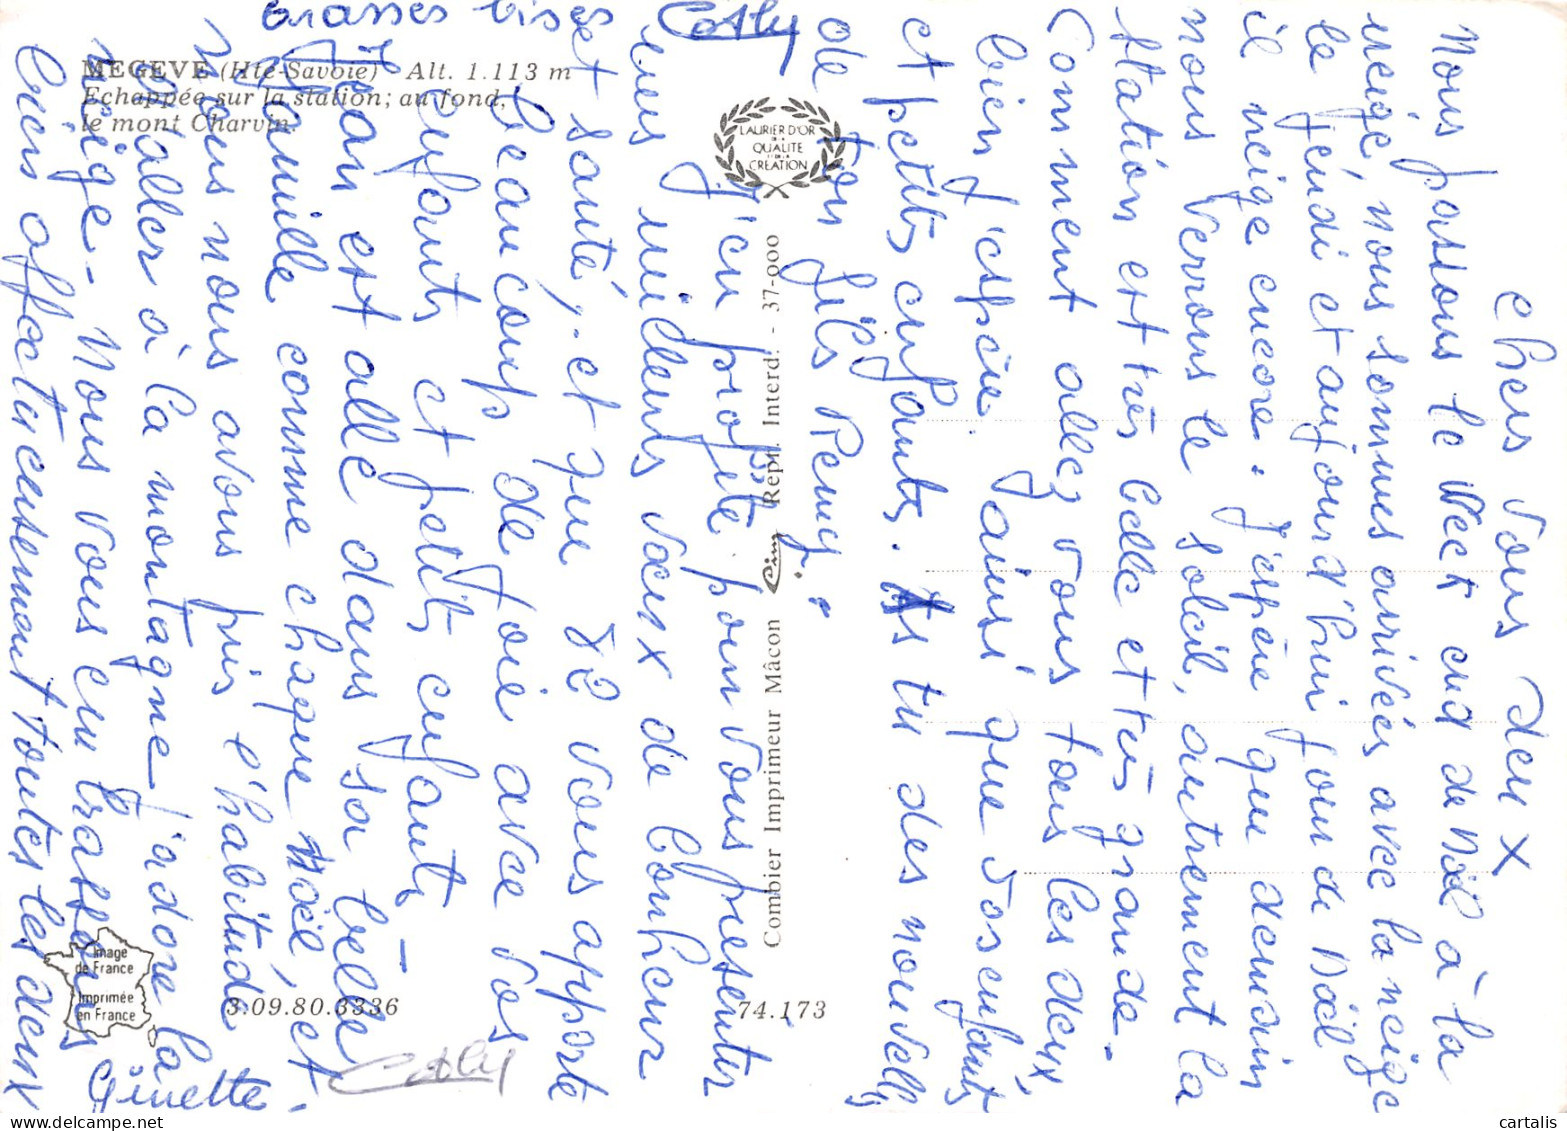 MEGÈVE (Hte-Savoie) - Alt. 1.113 m
Echappée sur la station; au fond,
le mont Charvin.
LAURIER D'OR
DE LA
QUALITÉ
ET DE LA
CRÉATION
Combier Imprimeur Mâcon Cim Répr. Interd. - 37-000
Image
de France
Imprimée
en France
3.09.80.3336
74.173
Chers vous deux
Nous passons le Week end de Noël à la
neige, nous sommes arrivées avec la neige
le jeudi et aujourd'hui jour de Noël
il neige encore. J'espère que demain
nous verrons le soleil, autrement la
station est très belle et très grande.
Comment allez vous tous les deux,
bien j'espère. Jainsi que vos enfants
et petits enfants. As tu des nouvelles
de ton fils Remy.
J'en profite pour vous présenter
mes meilleurs vœux de bonheur
et santé, et que 82 vous apporte
beaucoup de joie avec vos
enfants et petits enfants
Jean est allé dans sa belle
famille comme chaque Noël, et
nous nous avons pris l'habitude
d'aller à la montagne j'adore la
neige - Nous vous embrassons
bien affectueusement toutes les deux
Ginette.
Cathy
Grosses bises
Cathy